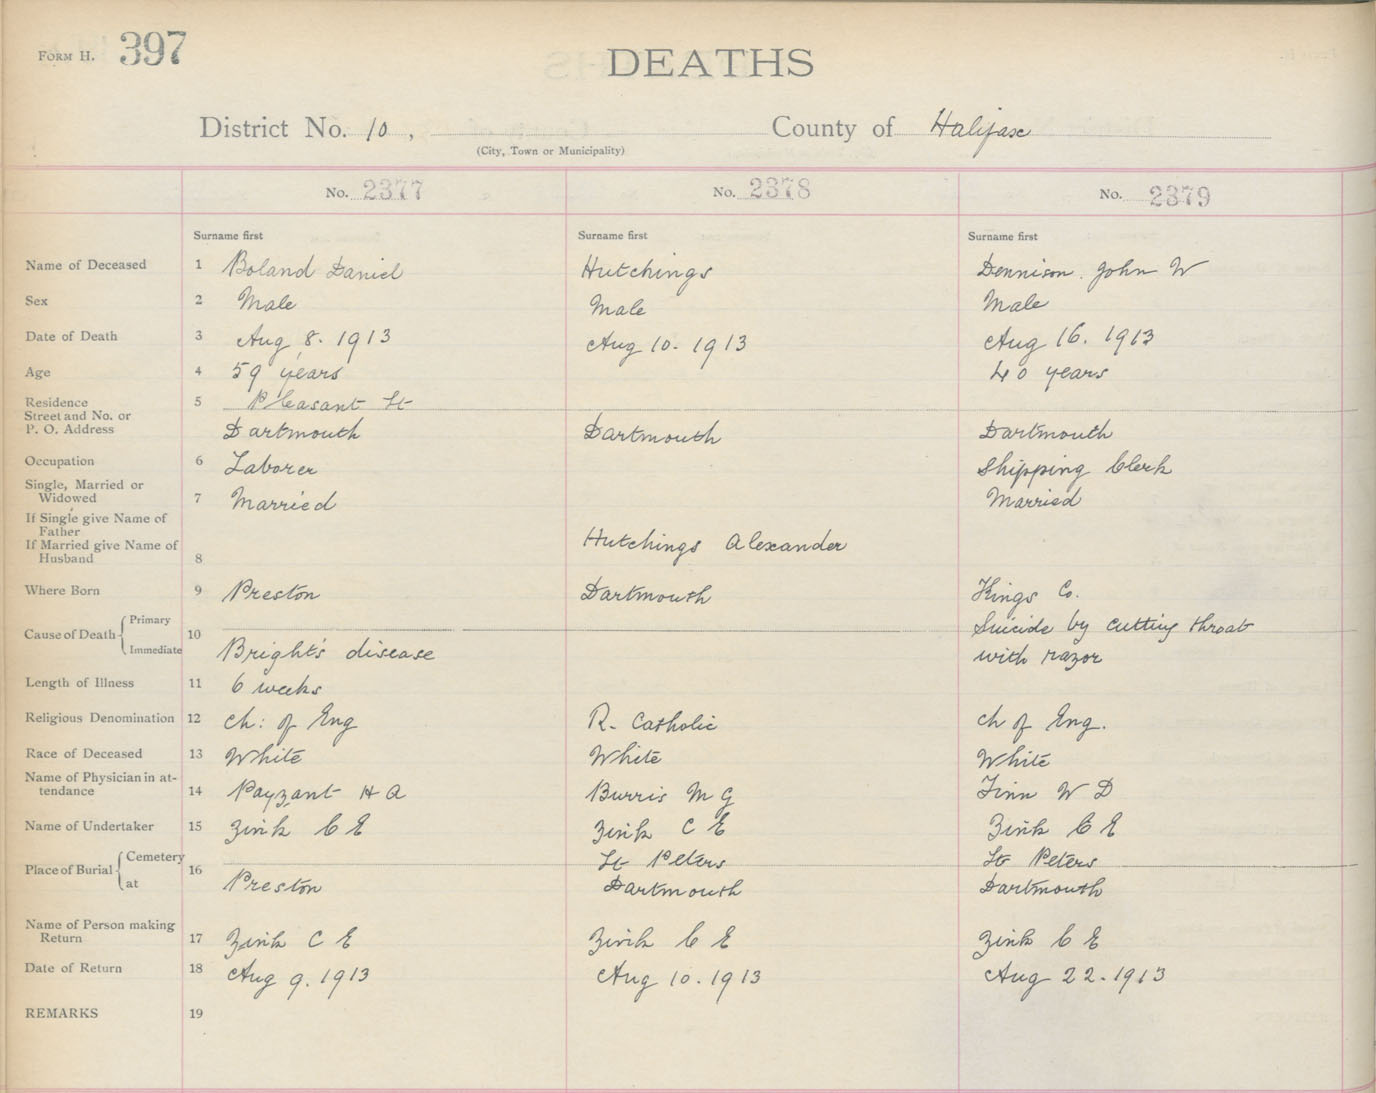 FORM H. 397
DEATHS
District No. 10, County of Halifax
(City, Town or Municipality)
No. 2377 No. 2378 No. 2379
Surname first Surname first Surname first
Name of Deceased 1 Boland Daniel Hutchings Dennison. John W
Sex 2 Male Male Male
Date of Death 3 Aug 8. 1913 Aug 10. 1913 Aug 16. 1913
Age 4 59 years 40 years
Residence 5 Pleasant St
Street and No. or
P. O. Address Dartmouth Dartmouth Dartmouth
Occupation 6 Laborer Shipping Clerk
Single, Married or
Widowed 7 Married Married
If Single give Name of
Father
If Married give Name of Hutchings Alexander
Husband 8
Where Born 9 Preston Dartmouth Kings Co.
Primary Suicide by cutting throat
Cause of Death 10
Immediate Bright's disease with razor
Length of Illness 11 6 weeks
Religious Denomination 12 Ch: of Eng R. Catholic Ch of Eng.
Race of Deceased 13 White White White
Name of Physician in at-
tendance 14 Payzant H A Burris M G Finn W D
Name of Undertaker 15 Zink C E Zink C E Zink C E
Cemetery St Peters St Peters
Place of Burial 16
at Preston Dartmouth Dartmouth
Name of Person making
Return 17 Zink C E Zink C E Zink C E
Date of Return 18 Aug 9. 1913 Aug 10. 1913 Aug 22. 1913
REMARKS 19